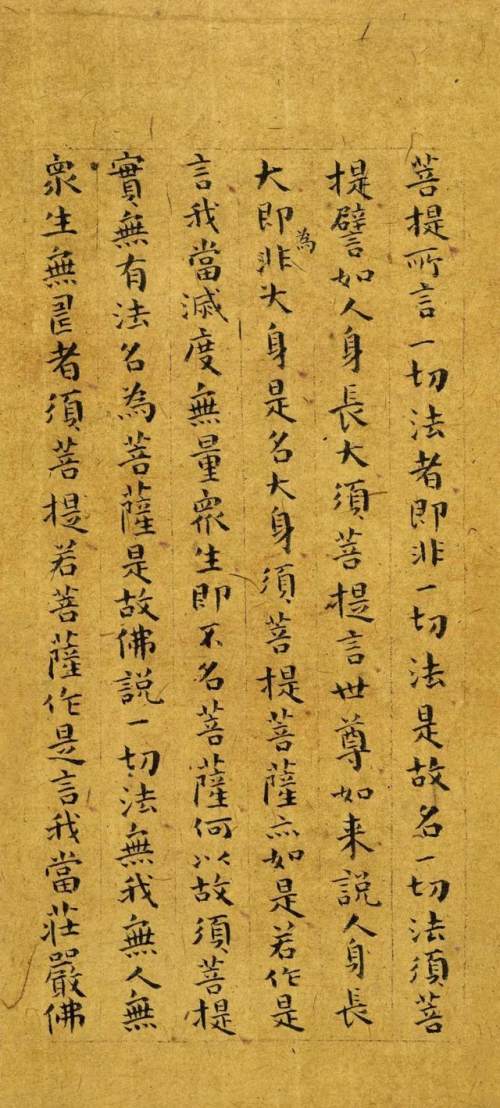 菩提所言一切法者即非一切法是故名一切法須菩
提譬如人身長大須菩提言世尊如来說人身長
大即非為大身是名大身須菩提菩薩亦如是若作是
言我當滅度無量眾生即不名菩薩何以故須菩提
實無有法名為菩薩是故佛說一切法無我無人無
眾生無壽者須菩提若菩薩作是言我當莊嚴佛